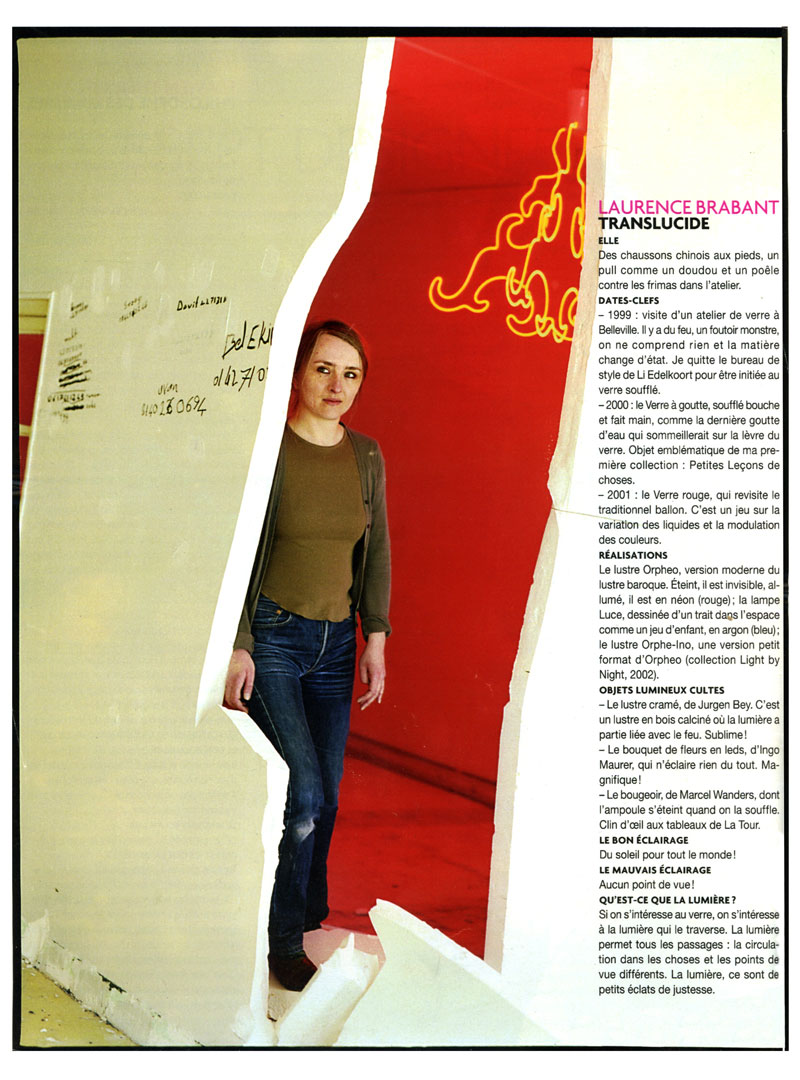 LAURENCE BRABANT
TRANSLUCIDE
ELLE
Des chaussons chinois aux pieds, un
pull comme un doudou et un poêle
contre les frimas dans l'atelier.
DATES-CLEFS
– 1999 : visite d'un atelier de verre à
Belleville. Il y a du feu, un foutoir monstre,
on ne comprend rien et la matière
change d'état. Je quitte le bureau de
style de Li Edelkoort pour être initiée au
verre soufflé.
– 2000 : le Verre à goutte, soufflé bouche
et fait main, comme la dernière goutte
d'eau qui sommeillerait sur la lèvre du
verre. Objet emblématique de ma pre-
mière collection : Petites Leçons de
choses.
– 2001 : le Verre rouge, qui revisite le
traditionnel ballon. C'est un jeu sur la
variation des liquides et la modulation
des couleurs.
RÉALISATIONS
Le lustre Orpheo, version moderne du
lustre baroque. Éteint, il est invisible, al-
lumé, il est en néon (rouge) ; la lampe
Luce, dessinée d'un trait dans l'espace
comme un jeu d'enfant, en argon (bleu) ;
le lustre Orphe-Ino, une version petit
format d'Orpheo (collection Light by
Night, 2002).
OBJETS LUMINEUX CULTES
– Le lustre cramé, de Jurgen Bey. C'est
un lustre en bois calciné où la lumière a
partie liée avec le feu. Sublime !
– Le bouquet de fleurs en leds, d'Ingo
Maurer, qui n'éclaire rien du tout. Ma-
gnifique !
– Le bougeoir, de Marcel Wanders, dont
l'ampoule s'éteint quand on la souffle.
Clin d'œil aux tableaux de La Tour.
LE BON ÉCLAIRAGE
Du soleil pour tout le monde !
LE MAUVAIS ÉCLAIRAGE
Aucun point de vue !
QU'EST-CE QUE LA LUMIÈRE ?
Si on s'intéresse au verre, on s'intéresse
à la lumière qui le traverse. La lumière
permet tous les passages : la circula-
tion dans les choses et les points de
vue différents. La lumière, ce sont de
petits éclats de justesse.
David
01 42 71 0